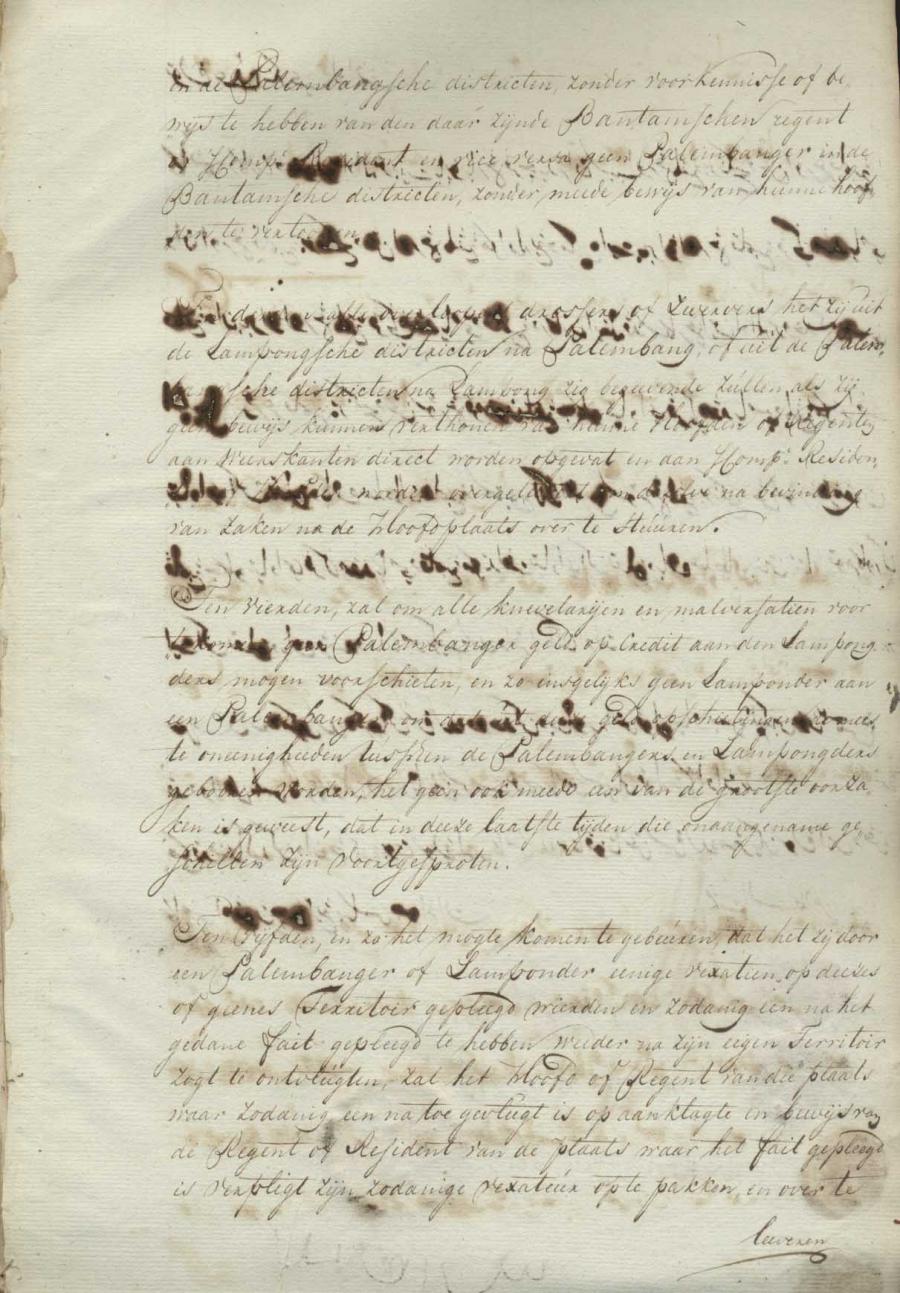 in de Palembangsche districten, zonder voorkennisse of be
wijs te hebben van den daar zijnde Bantamschen regent
en Komp:s Resident en vice versa geen Palembanger in de
Bantamsche districten, zonder meede bewijs van hunne hoof
den te vertoonen
Ten derden alle overlopers drossers of Zwervers, het zij uit
de Lampongsche districten na Palembang, of uit de Palem,
bangsche districten na Lampong zig begeevende zullen als zij
geen bewijs kunnen verthonen van hunne Hoofden of Regenten
aan weerskanten direct worden opgevat en aan Komp:s Residen,
na bevindinge
van zaken na de Hoofdplaats over te stuuren.
Ten Vierden, zal om alle knevelarijen en malversatien voor
te komen geen Palembanger geld op Credit aan den Lampong
ders mogen voorschieten, en zo insgelyks geen Lamponder aan
een Palembanger, om dat uit deze geld opschietingen de mees,
te oneenigheeden tusschen de Palembangers en Lampongders
gebooren worden, het geen ook meede een van de grootste oorza
ken is geweest, dat in deeze laatste tijden die onaangename ge,
schillen zijn voortgesproten.
Ten Vyfden, en zo het mogte komen te gebeuren, dat het zij door
een Palembanger of Lamponder eenige vexatien op deezes
of geenes Territoir gepleegd wierden en zodanig een na het
gedane fait gepleegd te hebben weeder na zijn eigen Territoir
zogt te ontvlugten, zal het Hoofd of Regent van die plaats
waar zodanig een na toe gevlugt is op aanklagte en bewijs van
de Regent of Resident van de plaats waar het fait gepleegd
is verpligt zijn zodanige vexateur op te pakken, en over te
leeveren